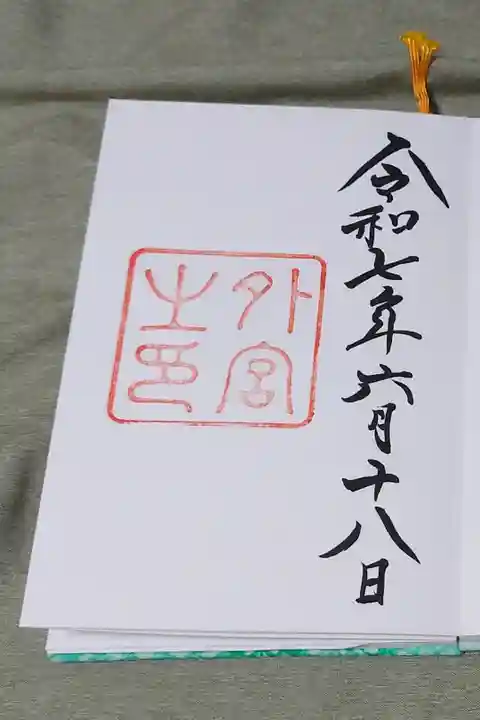 令和七年六月十八日
外宮
之印